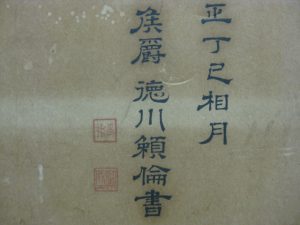 正丁巳相月
侯爵 德川賴倫書